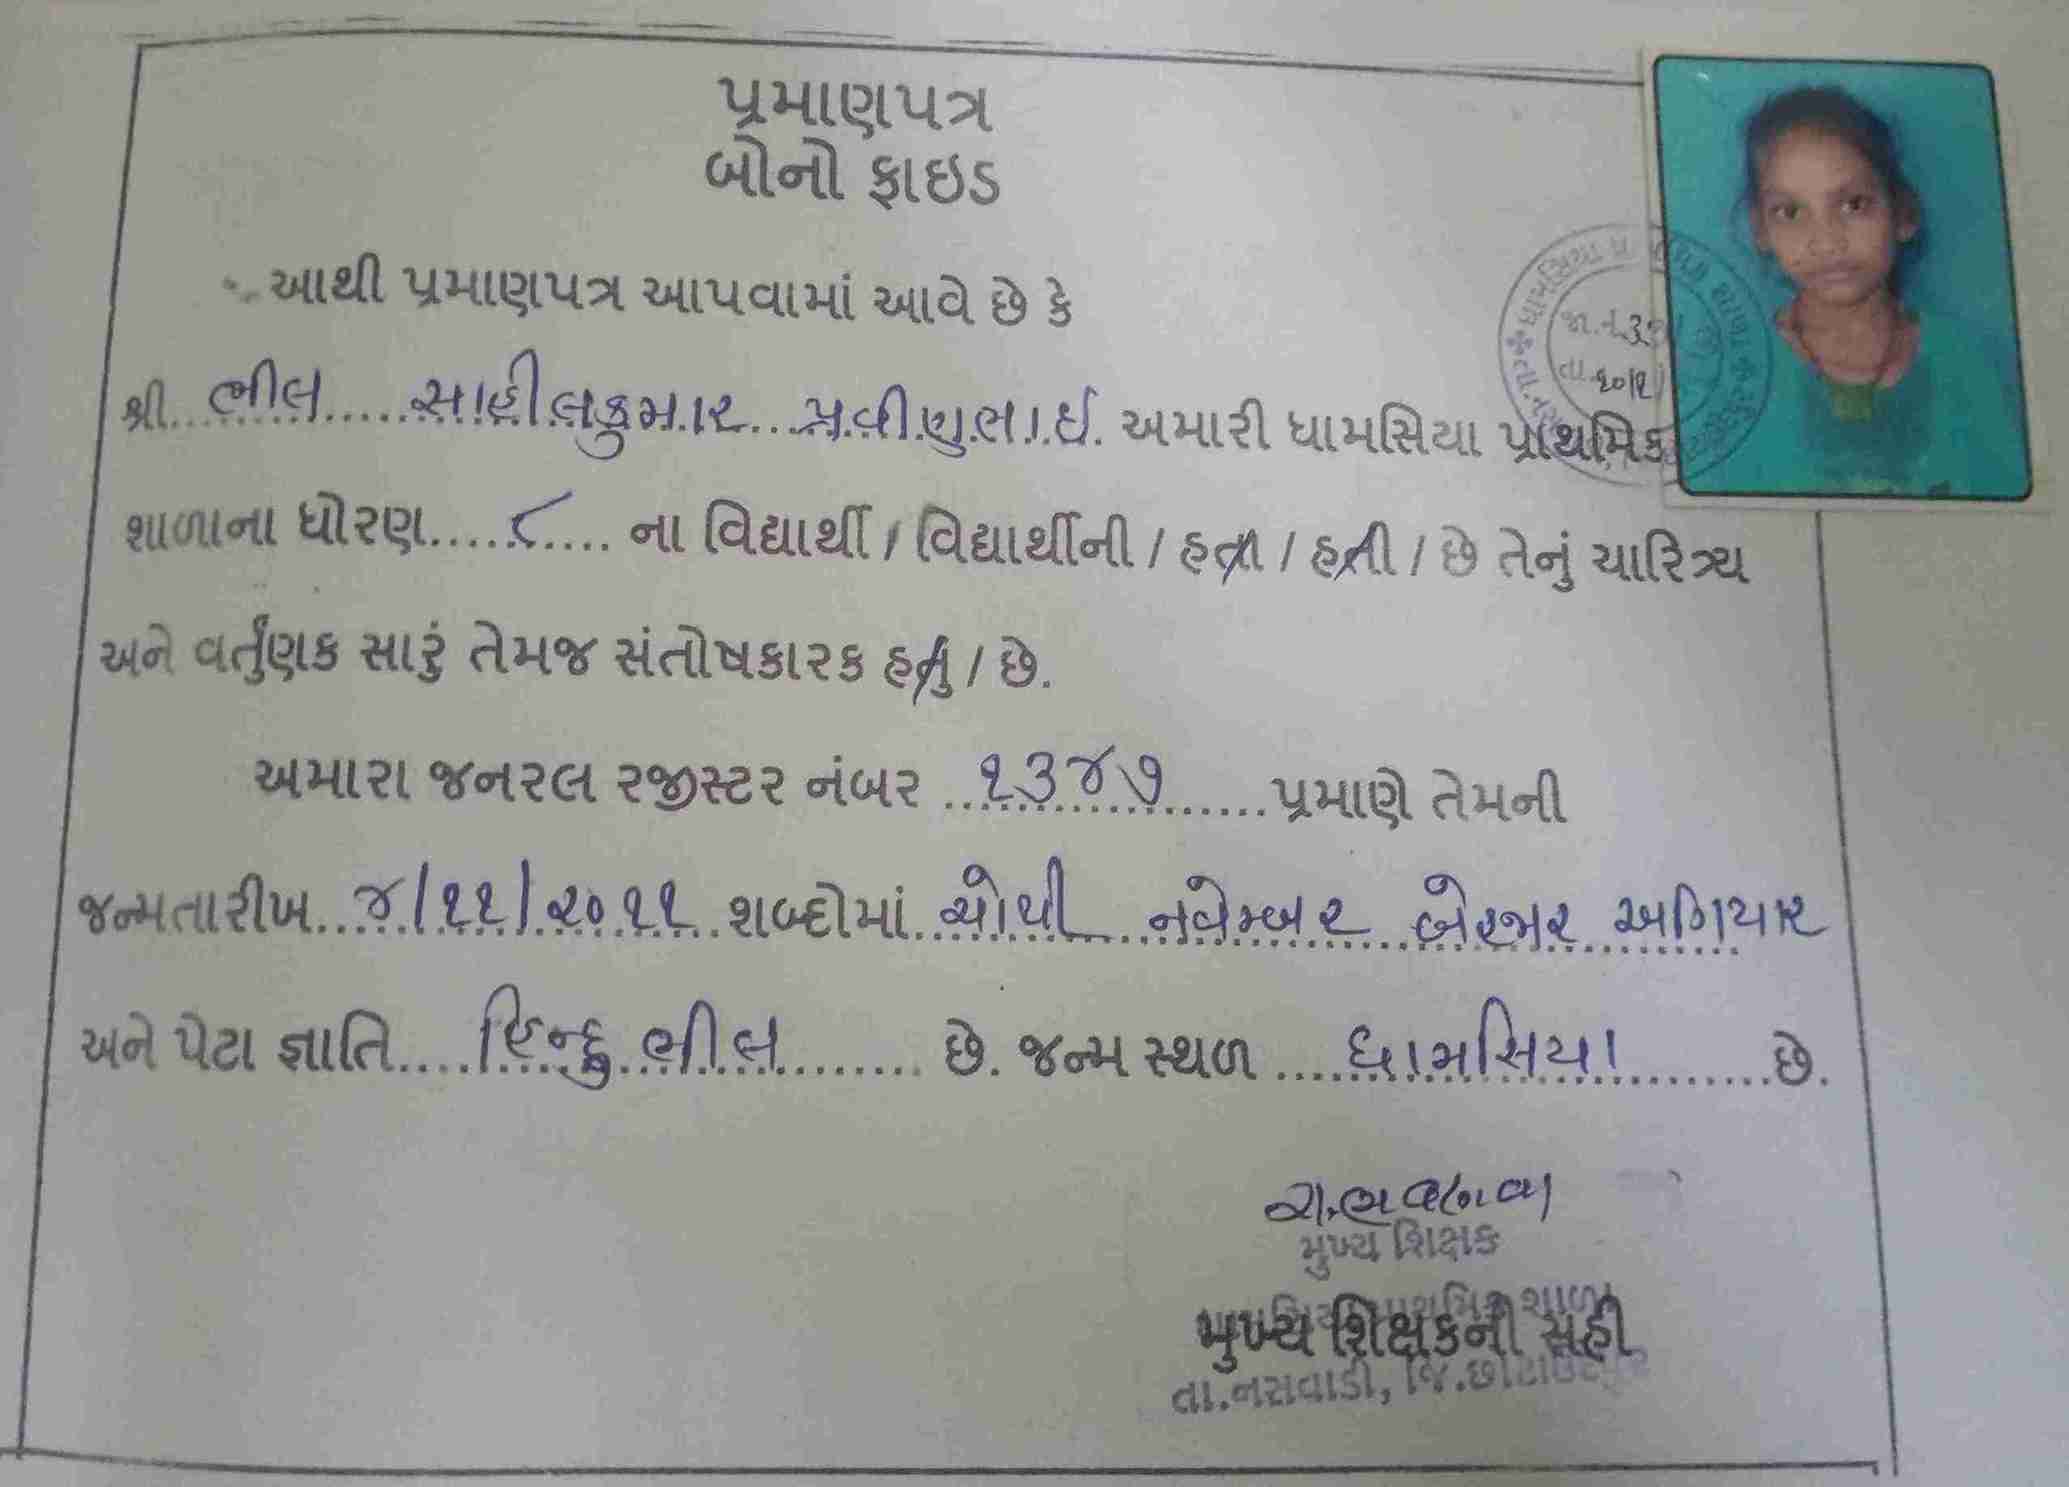 પ્રમાણપત્ર
બોનો ફાઇડ
આથી પ્રમાણપત્ર આપવામાં આવે છે કે
શ્રી...ભીલ.....સાહીલકુમાર...પ્રવીણભાઈ. અમારી ધામસિયા પ્રાથમિક
શાળાના ધોરણ.....૮.... ના વિદ્યાર્થી / વિદ્યાર્થીની / હતા / હતી / છે તેનું ચારિત્ર્ય
અને વર્તુંણક સારું તેમજ સંતોષકારક હતું / છે.
અમારા જનરલ રજીસ્ટર નંબર ...૧૩૪૭......પ્રમાણે તેમની
જન્મતારીખ...૪/૧૧/૨૦૧૧..શબ્દોમાં..ચોથી...નવેમ્બર બેહજાર અગિયાર
અને પેટા જ્ઞાતિ....હિન્દુ ભીલ....... છે. જન્મ સ્થળ ....ધામસિયા.......છે.
મુખ્ય શિક્ષક
મુખ્ય શિક્ષકની સહી
તા.નસવાડી, જિ.છોટાઉદેપુર